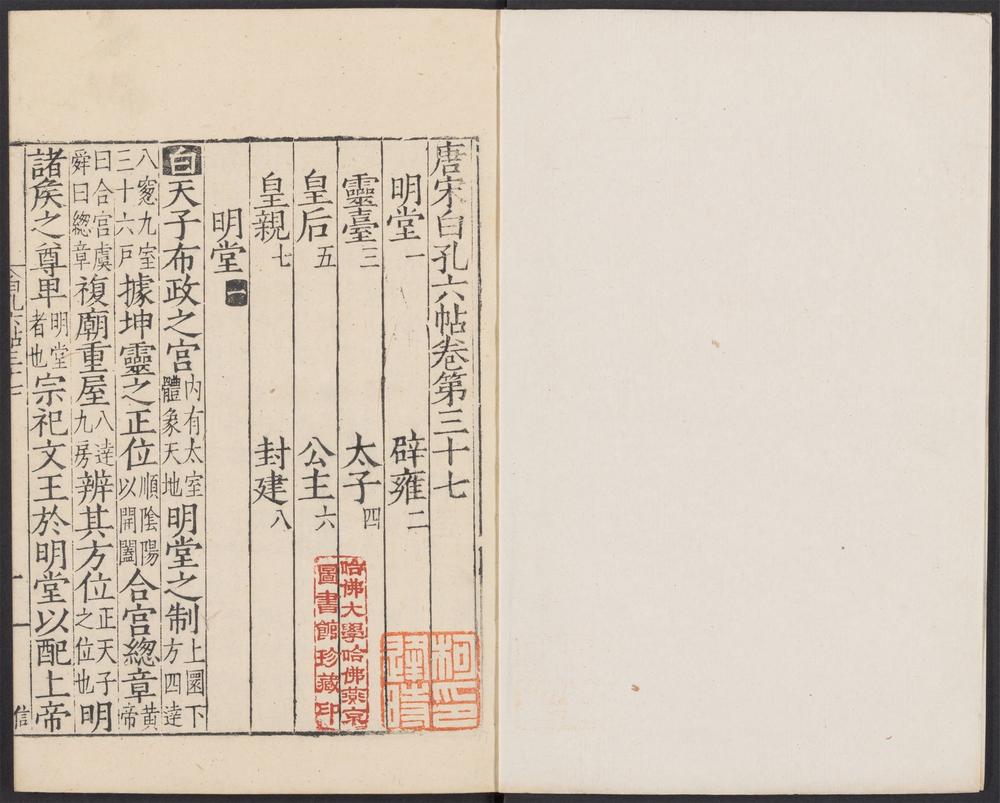 唐宋白孔六帖卷第三十七
明堂一 辟雍二
靈臺三 太子四
皇后五 公主六
皇親七 封建八
明堂一
白天子布政之宮內有太室體象天地明堂之制上圓下方四達
八窻九室三十六戶據坤靈之正位順陰陽以開闔合宮總章黃帝
曰合宮虞舜曰總章複廟重屋八達九房辨其方位正天子之位也明
諸矦之尊卑明堂者也宗祀文王於明堂以配上帝
信
哈佛大學哈佛燕京
圖書館珍藏印